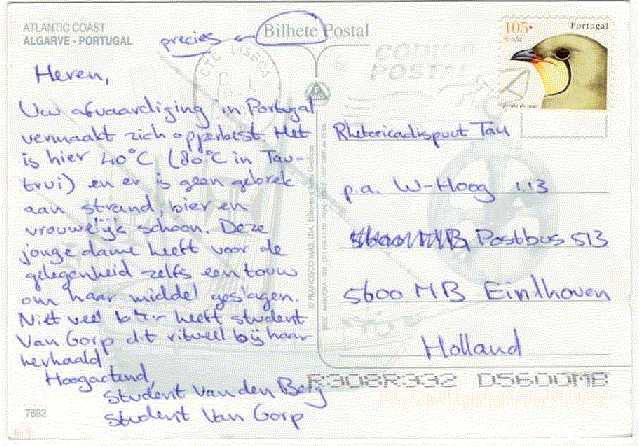 ATLANTIC COAST
ALGARVE - PORTUGAL
precies
Bilhete Postal
105-
Portugal
CTC LISBOA
CODIGO
POSTAL
Heren,
Uw afvaardiging in Portugal
vermaakt zich opperbest. Het
is hier 40°C (80°C in Tau-
trui) en er is geen gebrek
aan strand, bier en
vrouwelijk schoon. Deze
jonge dame heeft voor de
gelegenheid zelfs een touw
om haar middel geslagen.
Niet veel later heeft student
Van Gorp dit ritueel bij haar
herhaald.
Hoogachtend,
student van den Berg
student Van Gorp
7882
Rhetoricadispuut Tau
p.a. W-Hoog 1.13
Postbus 513
5600 MB Eindhoven
Holland
R308R332 D5600MB